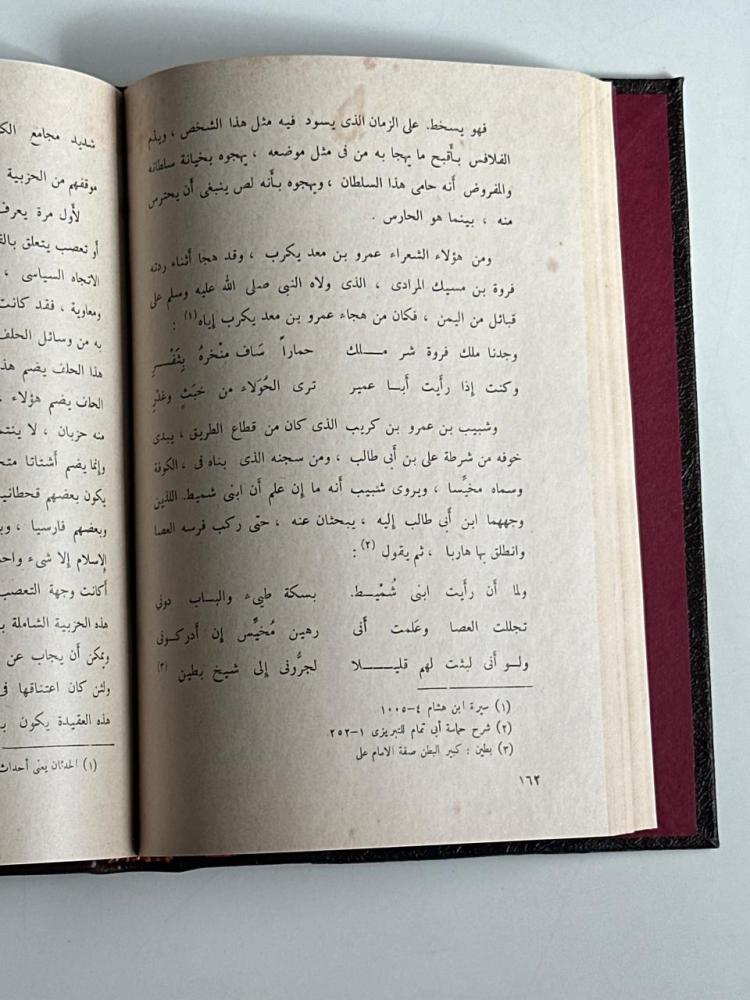 فهو يسخط. على الزمان الذى يسود فيه مثل هذا الشخص ، ويذم
الفلافس بأقبح ما يهجا به من فى مثل موضعه ، يهجوه بخيانة سلطانه
والمفروض أنه حامى هذا السلطان ، ويهجوه بأنه لص ينبغى أن يحترس
منه ، بينما هو الحارس .
ومن هؤلاء الشعراء عمرو بن معد يكرب ، وقد هجا أثناء ردته
فروة بن مسيك المرادى ، الذى ولاه النبي صلى الله عليه وسلم على
قبائل من اليمن ، فكان من هجاء عمرو بن معد يكرب إياه (١) :
وجدنا ملك فروة شر مـــلك حماراً ساف منْخرهُ بِثَفْـــرِ
وكنت إذا رأيت أبـا عمير ترى الحُوَلاء من خبَثٍ وغدْرِ
وشبيب بن عمرو بن كريب الذى كان من قطاع الطريق ، يبدى
خوفه من شرطة على بن أبى طالب ، ومن سجنه الذى بناه فى ، الكوفة
وسماه مخيِّسا ، ويروى شبيب أنه ما إن علم أن ابنى شميط. اللذين
وجههما ابن أبى طالب إليه ، يبحثان عنه ، حتى ركب فرسه العصا
وانطلق بها هاربا ، ثم يقول (٢) :
ولما أن رأيت ابنى شُمْيـط. بسكة طيىء والبـاب دوني
تجللت العصا وعَلمت أنى رهين مُخيِّس إن أدركـونى
ولـو أنى لبثت لهم قليــــلا لجرُّونى إلى شيخ بطين (٣)
(١) سيرة ابن هشام ٤-١٠٠٥
(٢) شرح حماسة أبي تمام للتبريزى ١-٢٥٢
(٣) بطين : كبير البطن صفة الامام على
١٦٢
شديد مجامع
موقفهم من الحزبية
لأول مرة يعرف
أو تعصب يتعلق
الاتجاه السياسى ،
ومعاوية ، فقد كانت
به من وسائل الحلف
هذا الحلف يضم
الحلف يضم هؤلاء ،
منه حزبان ، لا
وإنما يضم أشتاتا
يكون بعضهم
وبعضهم فارسيا ،
الإسلام إلا شىء
أكانت وجهة التعصب
هذه الحزبية الشاملة
ويمكن أن يجاب عن
ولئن كان اعتناقها
هذه العقيدة يكون
(١) الحدثان يعنى